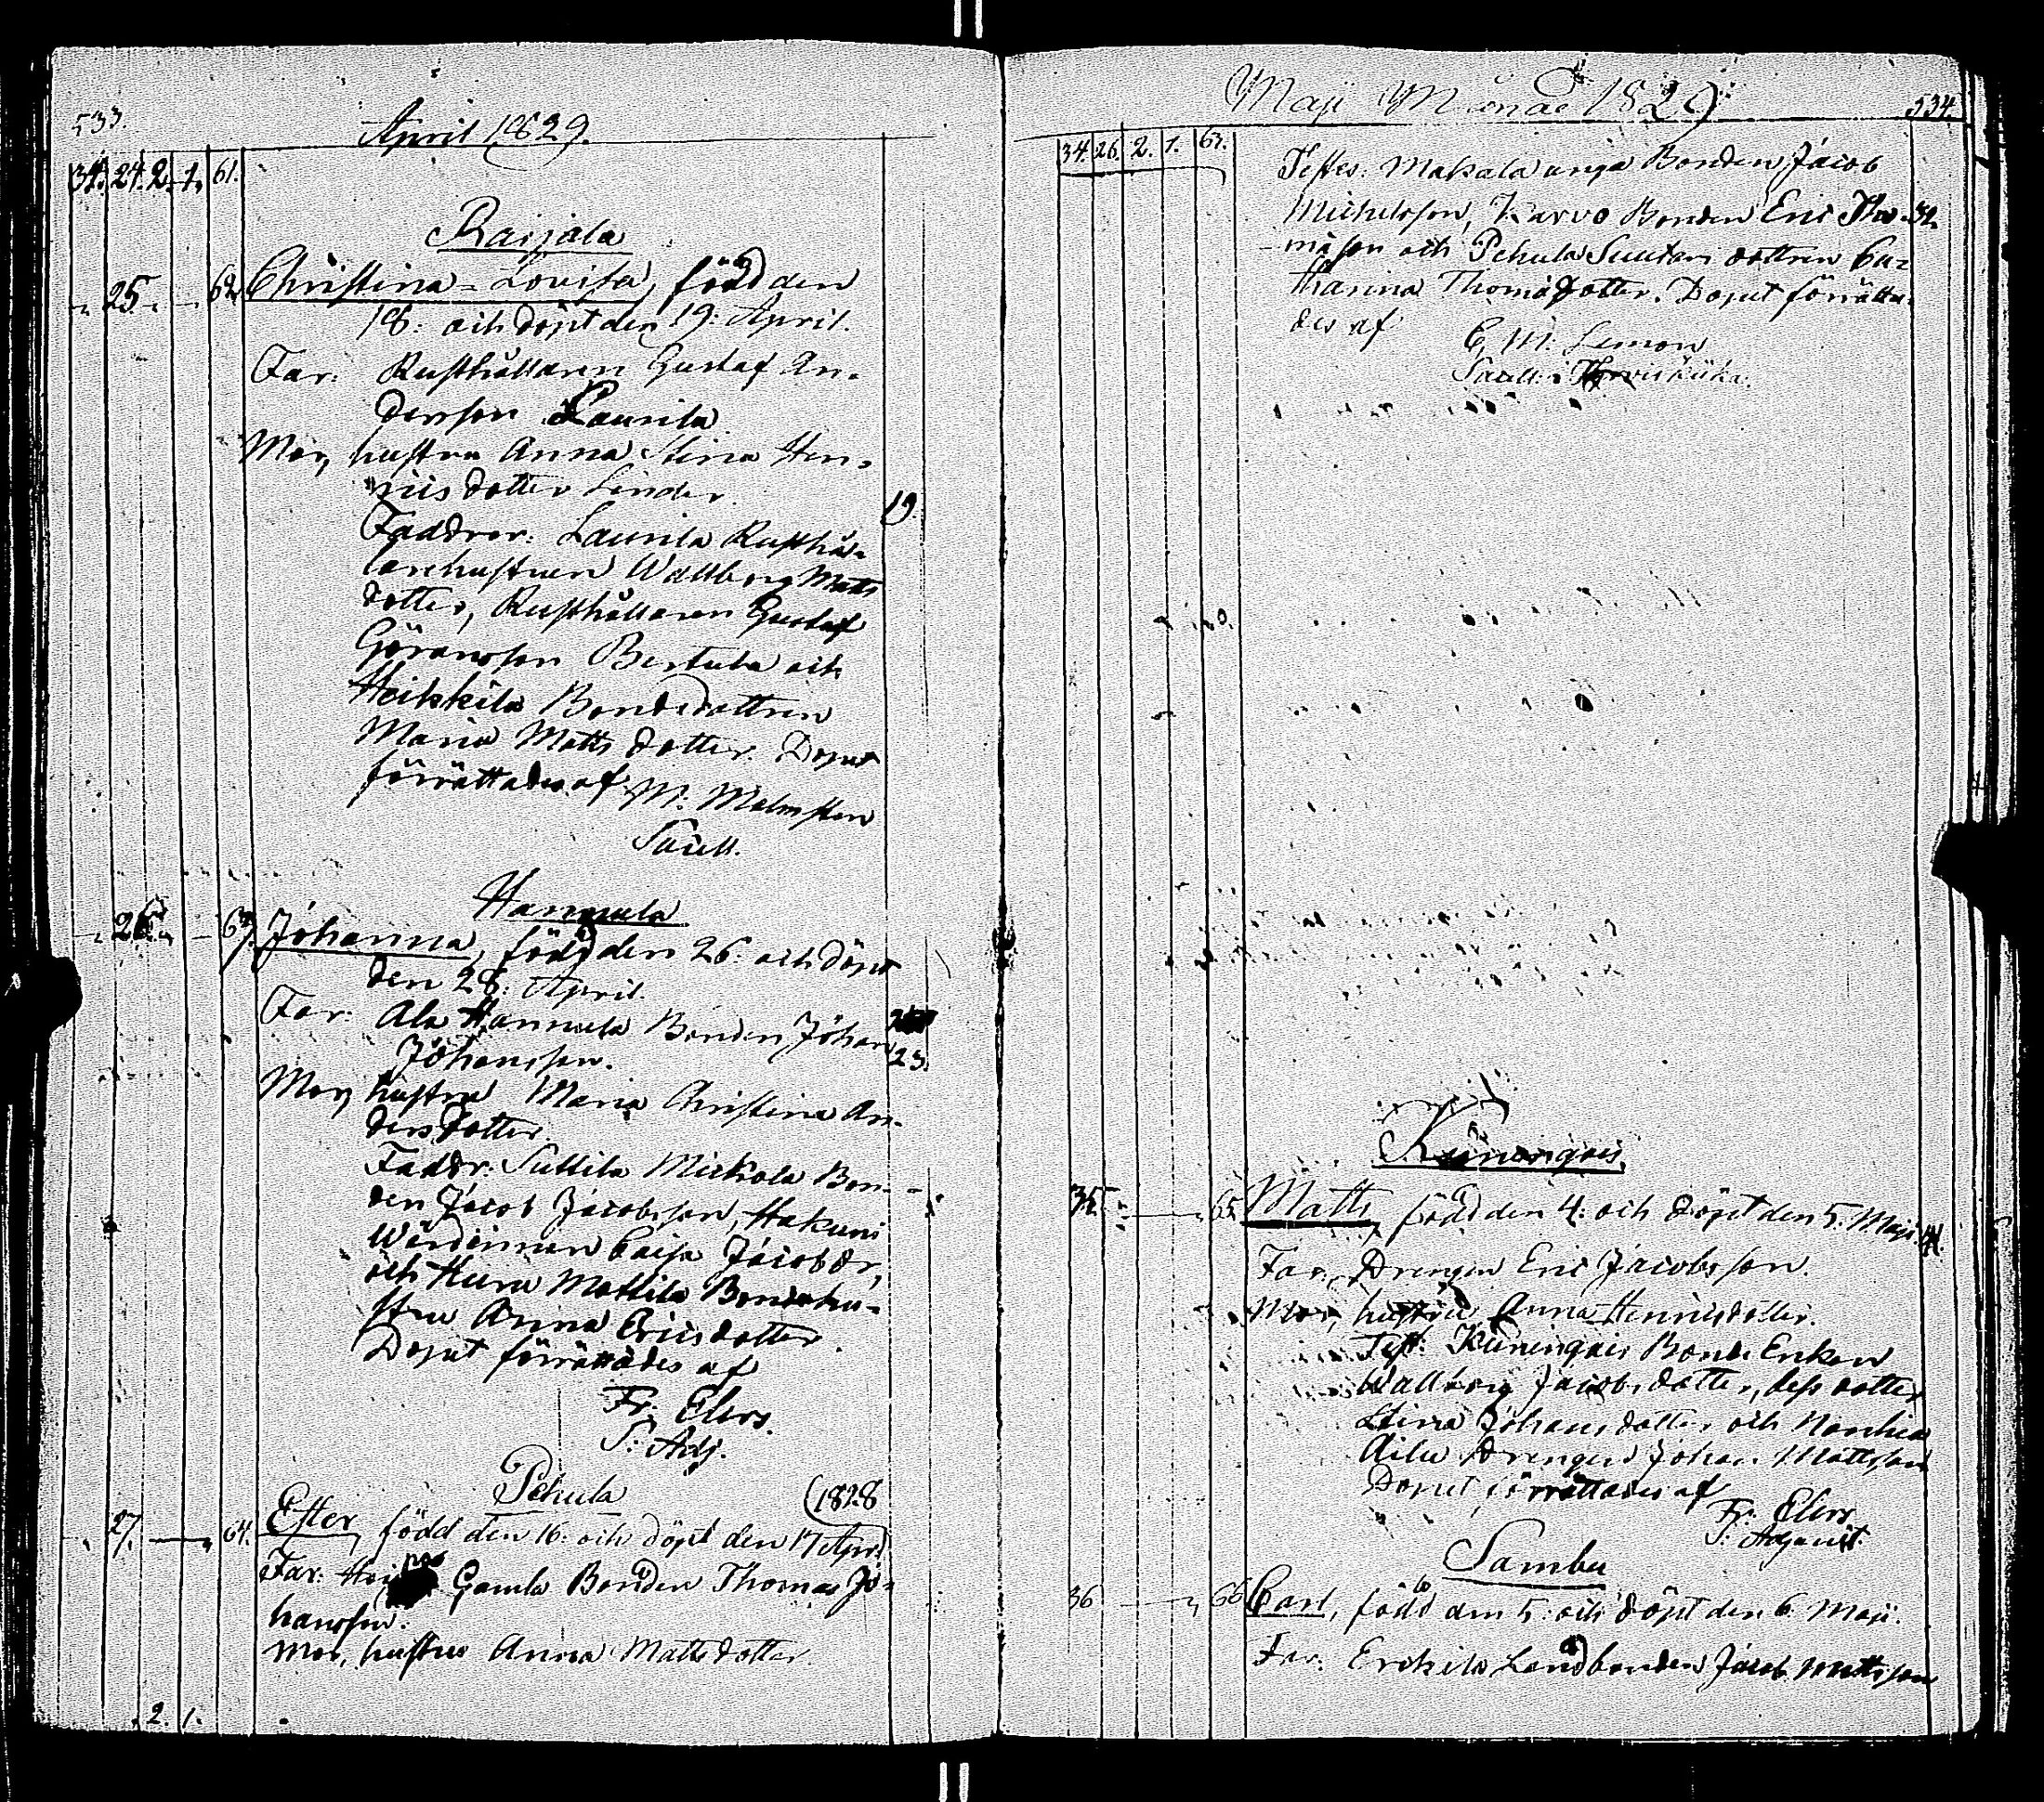 533.
April 1829.
34. 24. 2. 1. 61.
Raijala
25. 62. Christina-Lovisa, född den
18: och döpt den 19: April.
Far: Rusthållaren Gustaf An-
dersson Laurila
Mor, hustru Anna Stina Hen-
ricsdotter Linder.
19.
Faddrar: Laurila Rusthål-
larehustrun Wallborg Matts
dotter, Rusthållaren Gustaf
Göransson Bertula och
Heikkilä Bondedottren
Maria Mattsdotter. Doput
förrättades af M: Malmsten
Sacell.
Hannula
26. 63. Johanna, född den 26: och döpt
den 28: April.
Far: Ala Hannula Bonden Johan
Johansson.
23.
Mor, hustru Maria Christina An-
dersdotter.
Faddr: Suttila Mickola Bon-
den Jacob Jacobsson, Hakuni
Wärdinnan Caisa Jacobdr,
och Huru Mattila Bondehu-
stru Anna Ericsdotter.
Doput förrättades af
Fr: Elers.
P: Adj.
Pehula (1828
27. 64. Ester, född den 16: och döpt den 17 Apr:
Far: Gamla Bonden Thomas Jo-
hansson.
Mor, hustru Anna Mattsdotter.
2. 1.
Maji Månad 1829.
534.
34. 26. 2. 1. 63.
Testes: Makala unga Bonden Jacob
Michelsson, Karvo Bonden Eric Tho-
masson och Pehula Suutari dottren Ca-
tharina Thomædotter. Doput förrätta-
des af
C. M: Lemon
Sacell: i
Keinengais
35. 65. Matts, född den 4: och döpt den 5: Maji.
Far, Drengen Eric Jacobsson.
Mor, hustru Anna Henricsdotter.
Test: Keinengais Bonde Enkan
Wallborg Jacobsdotter, dess dotter
Stina Johansdotter och Nanhia
Äilu Drengen Johan Mattsson
Doput förrättades af
Fr: Elers
P: Adjunct.
Sambu
36 66 Carl, född den 5: och döpt den 6: Maji.
Far: Erckilä Landbonden Jacob Mattsson